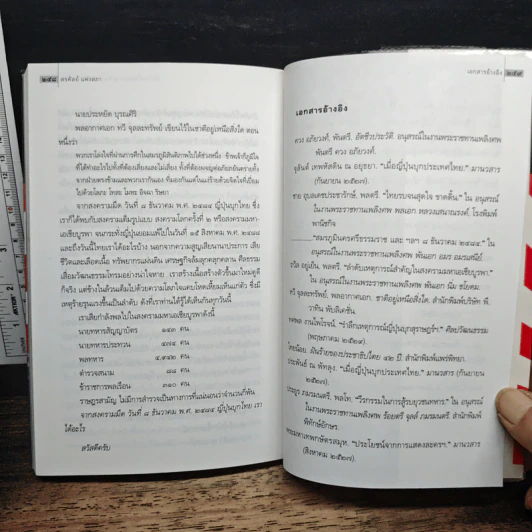 ๒๕๘ สรศัลย์ แพ่งสภา
นายประหยัด บุรณศิริ
พลอากาศเอก ทวี จุลละทรัพย์ เขียนไว้ในชาติอยู่เหนือสิ่งใด ตอน
หนึ่งว่า
พวกเราไม่ใช่
ได้ทำอะไรไปทั้งสิ่งที่ดี
ไปด้วยโลภะ โทสะ โมหะ อิจฉา ริษยา
จากสงครามมืด วันที่ ๘ ธันวาคม พ.ศ. ๒๔๘๔ ญี่ปุ่นบุกไทย ซึ่ง
เราก็ได้พบกับสงครามเต็มรูปแบบ สงครามโลกครั้งที่ ๒ หรือสงครามมหา-
เอเชียบูรพา จนกระทั่งญี่ปุ่นยอมแพ้ไปในวันที่ ๑๕ สิงหาคม พ.ศ. ๒๔๘๘
และถึงวันนี้ไทยเราได้อะไรบ้าง นอกจากความสูญเสียนานาประการ เสีย
ชีวิตและเลือดเนื้อ ทรัพยากรแผ่นดิน เศรษฐกิจล้มลุกคลุกคลาน ศีลธรรม
เสื่อมวัฒนธรรมโทรมอย่างน่าใจหาย เราสร้างเนื้อสร้างตัวขึ้นมาใหม่ดูดี
เหตุร้ายรุนแรงขึ้นเป็นลำดับ ดังที่เราท่านได้รู้ได้เห็นกันทุกวันนี้
เราเสียกำลังพลไปในสงครามมหาเอเชียบูรพาดังนี้
นายทหารสัญญาบัตร ๑๔๓ คน
นายทหารประทวน ๔๗๔ คน
พลทหาร ๔,๙๔๒ คน
ตำรวจสนาม ๘๘ คน
ข้าราชการพลเรือน ๓๑๐ คน
ราษฎรสามัญ ไม่มีการสำรวจเป็นทางการที่แน่นอนว่าจำนวนกี่พัน
จากสงครามมืด วันที่ ๘ ธันวาคม พ.ศ. ๒๔๘๔ ญี่ปุ่นบุกไทย เรา
ได้อะไร
สวัสดีครับ
เอกสารอ้างอิง ๒๕๙
เอกสารอ้างอิง
ควง อภัยวงศ์, พันตรี. อัตชีวประวัติ. อนุสรณ์ในงานพระราชทานเพลิงศพ
พันตรี ควง อภัยวงศ์.
จุลินต์ เทพหัสดิน ณ อยุธยา. "เมื่อญี่ปุ่นบุกประเทศไทย." มานวสาร
(กันยายน ๒๕๒๗).
ชาย อุบลเดชประชารักษ์, พลตรี. "ไทยรบจนสุดใจ ขาดดิ้น." ใน อนุสรณ์
ในงานพระราชทานเพลิงศพ พลเอก หลวงเสนาณรงค์. โรงพิมพ์
พานิชกิจ
"สมรภูมินครศรีธรรมราช และ ฯลฯ ๘ ธันวาคม ๒๔๘๔." ใน
อนุสรณ์งานพระราชทานเพลิงศพ พันเอก
ถวิล อยู่เย็น, พลตรี. "ลำดับเหตุการณ์สำคัญในสงครามมหาเอเชียบูรพา."
ใน อนุสรณ์งานพระราชทานเพลิงศพ พันเอก
ทวี จุลละทรัพย์, พลอากาศเอก. ชาติอยู่เหนือสิ่งใด. สำนักพิมพ์บริษัท พี.
วาทิน พับลิเคชั่น.
ทศพล งามไพโรจน์. "รำลึกเหตุการณ์ญี่ปุ่นบุกสุราษฎร์ฯ." ศิลปวัฒนธรรม
(พฤษภาคม ๒๕๒๙).
ไทยน้อย. มันร้ายของประชาธิปไตย ๔๒ ปี. สำนักพิมพ์แพร่พิทยา.
ประพันธ์ ณ พัทลุง. "เมื่อญี่ปุ่นบุกประเทศไทย." มานวสาร (กันยายน
๒๕๒๗).
ประยูร ภมรมนตรี, พลโท. "วีรกรรมในการสู้รบยุวชนทหาร." ใน อนุสรณ์
ในงานพระราชทานเพลิงศพ ร้อยตรี จุลล์ ภมรมนตรี. สำนักพิมพ์
พิทักษ์อักษร.
พระมหาเทพกษัตรสมุห. "ประโยชน์จากการแสดงละครฯ." มานวสาร
(สิงหาคม ๒๕๒๗).